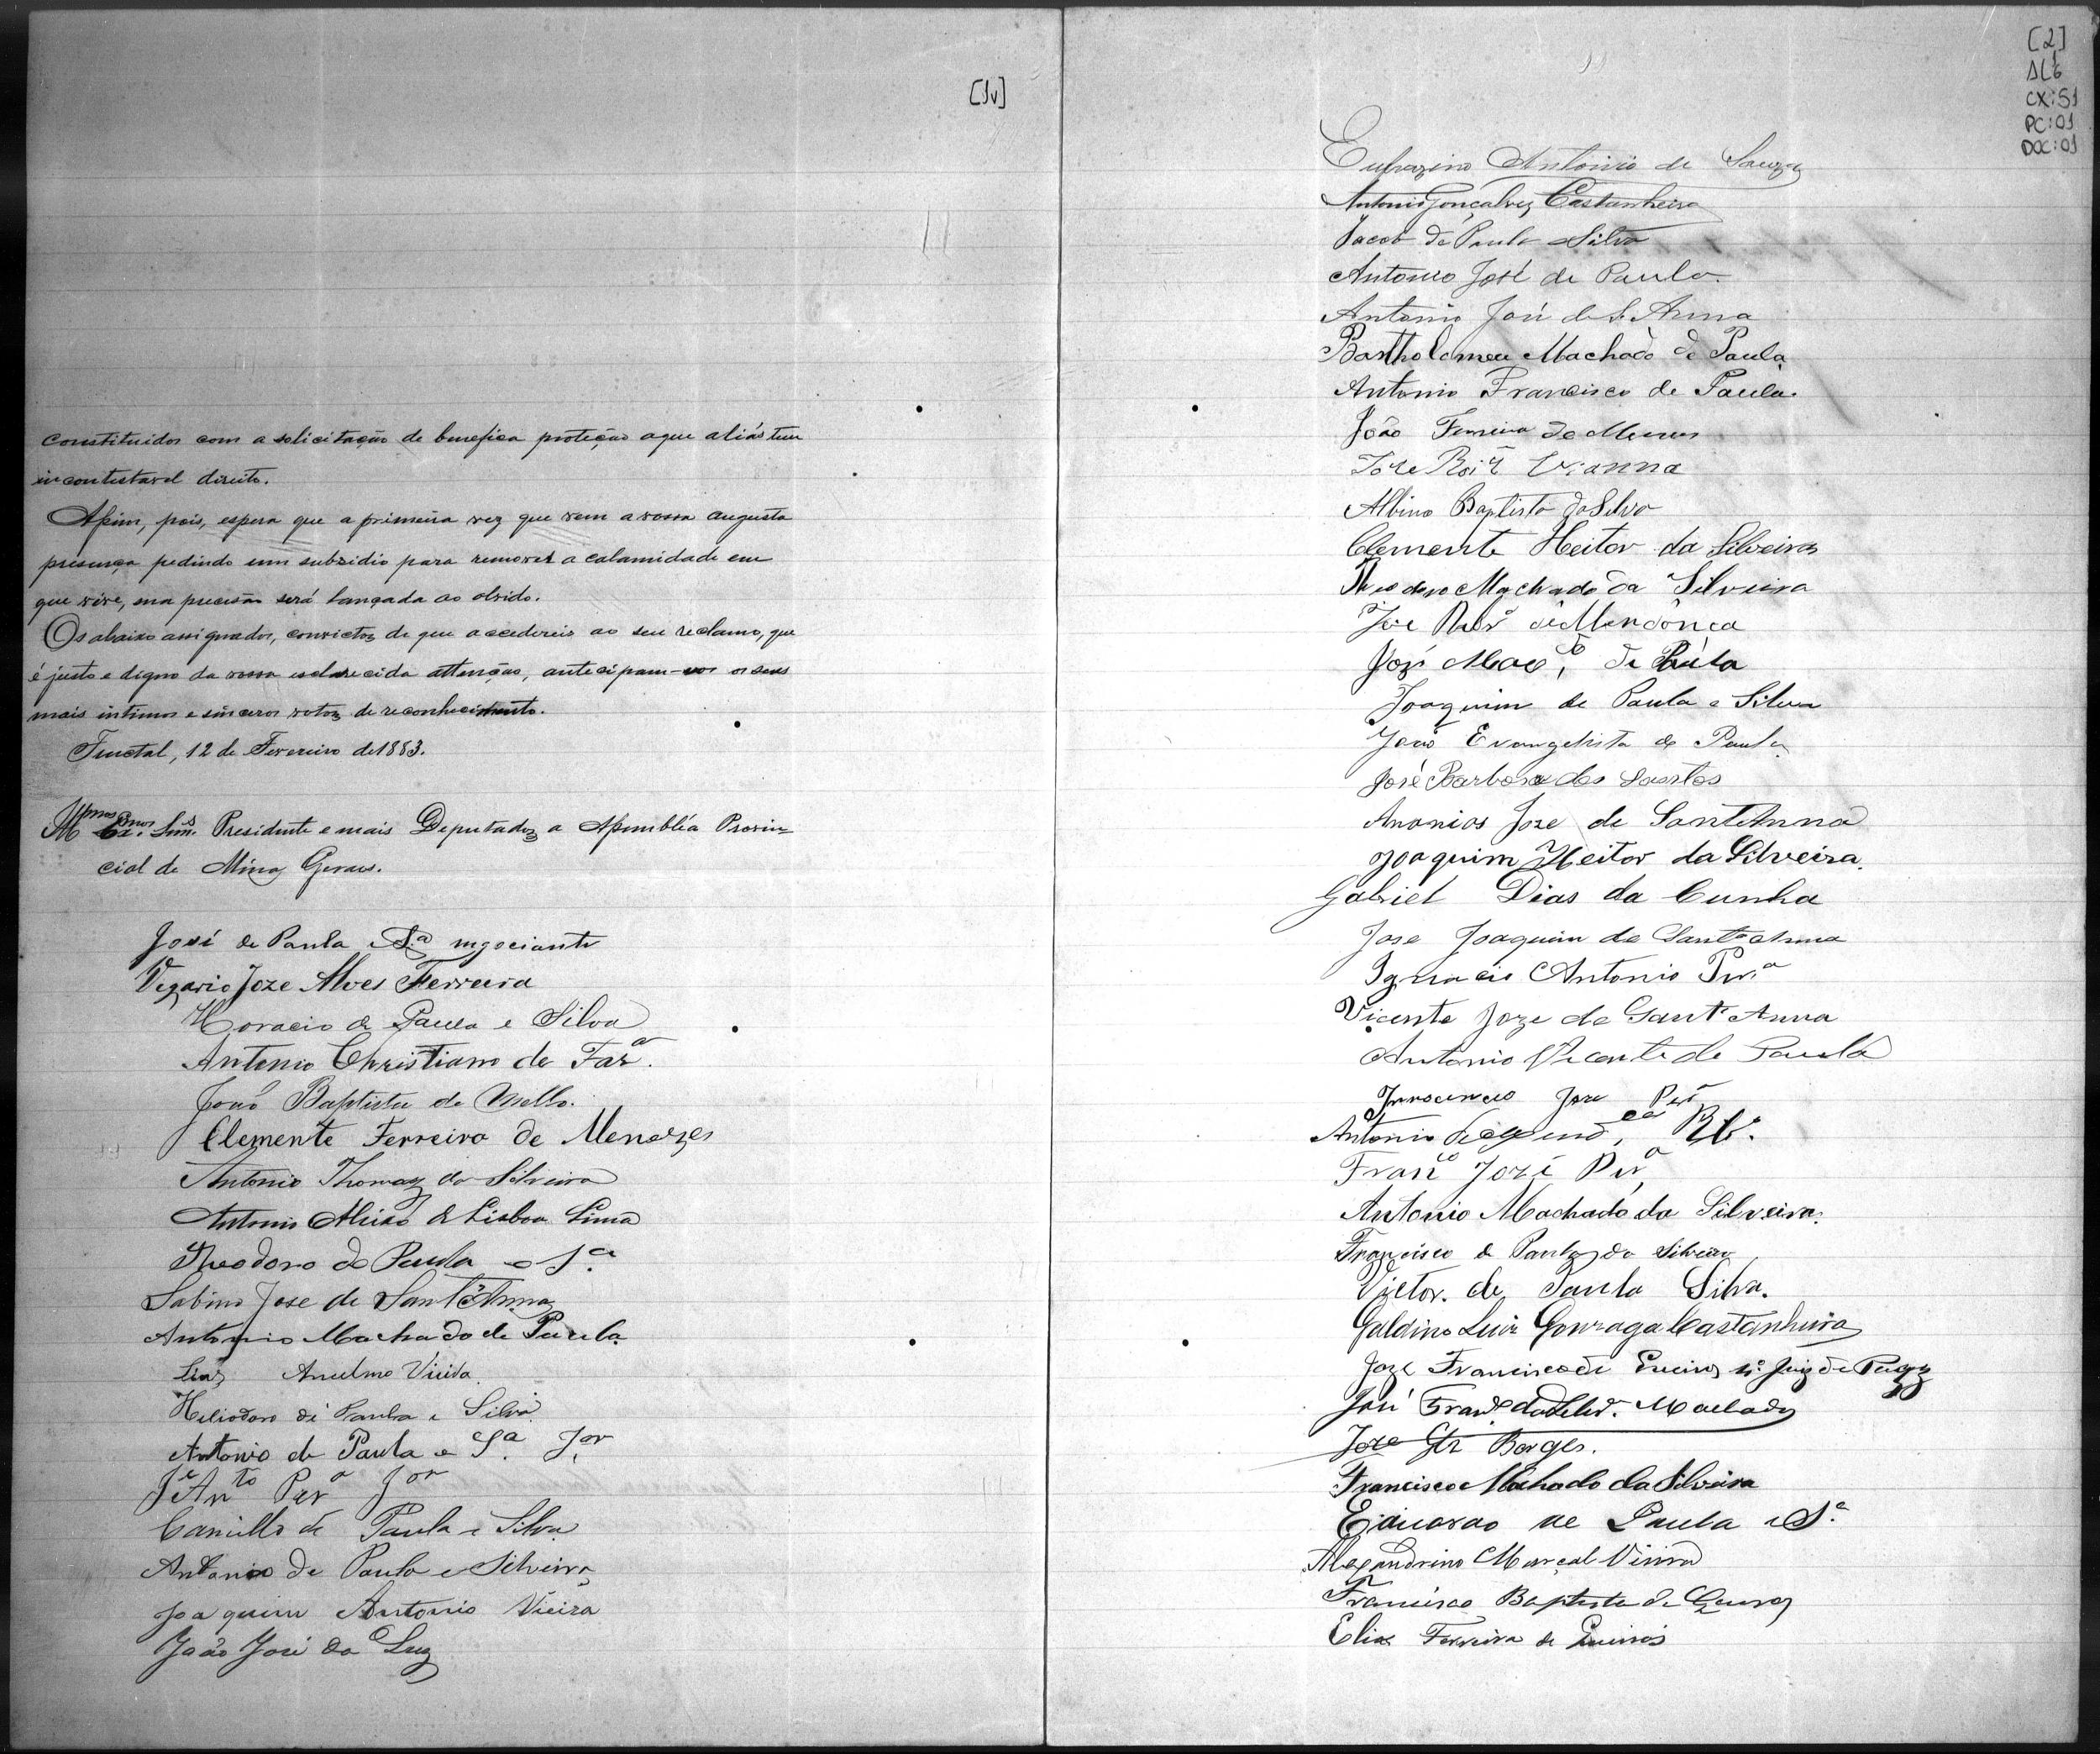 [1v]
constituidos com a solicitação de benefica proteção a que aliás tem
incontestavel direito.
Assim, pois, espera que a primeira vez que vem a vossa augusta
presença pedindo um subsidio para remover a calamidade em
que vive, sua precisão será lançada ao olvido.
Os abaixo assignados, convictos de que accedereis ao seu reclamo, que
é justo e digno da vossa esclarecida attenção, antecipam-vos os seus
mais intimos e sinceros votos de reconhecimento.
Fructal, 12 de Fevereiro de 1883.
Snrs. Presidente e mais Deputados a Assembléa Provin
cial de Minas Geraes.
José de Paula e Sª negociante
Vigario Joze Alves Ferreira
Horacio de Paula e Silva
Antonio Christiano de Farª.
João Baptista de Mello.
Clemente Ferreira de Menezes
Antonio Thomaz da Silveira
Antonio Aleixo de Lisboa Lima
Theodoro de Paula e Sª.
Sabino Jose de Sant'Anna
Antonio Machado de Paula
Anselmo Vieira
Heliodoro de Paula e Silva
Antonio de Paula e Sª. Jor
Je Anto Perª Jor
Camillo de Paula e Silva
Antonio de Paula e Silveira
Joaquim Antonio Vieira
João José da Luz
[2]
AL1
CX:51
PC:01
DOC:01
Eufrazino Antonio de Souza
Antonio Gonçalves Castanheira
Jacob de Paula Silva
Antonio José de Paula
Antonio José de S. Anna
Bartholomeu Machado de Paula
Antonio Francisco de Paula.
João Ferreira de Menezes
Jose Roiz Vianna
Albino Baptista da Silva
Clemente Heitor da Silveira
Theodoro Machado da Silveira
Joe de Mendonca
José Macdo, de Paula
Joaquim de Paula e Silva
João Evangelista de Paula
José Barbosa dos Santos
Ananias Joze de SantAnna
Joaquim Heitor da Silveira.
Gabriel Dias da Cunha
Jose Joaquim de Santa Anna
Ignacio Antonio Perª
Vicente Joze de Sant'Anna
Antonio Vicente de Paula
Innocencio Jose Perª
Antonio
Franco José Perª
Antonio Machado da Silveira.
Francisco de Paula da Silveira
Victor. de Paula Silva.
Galdino Luiz Gonzaga Castanheira
Joze Francisco de Queiros Juiz de Paz
José Franco da Silvª. Machado
Joze Borges.
Francisco Machado da Silveira
Eduardo de Paula e Sª.
Alexandrino Marçal Vieira
Francisco Baptista de Souza
Elias Ferreira de Queiros